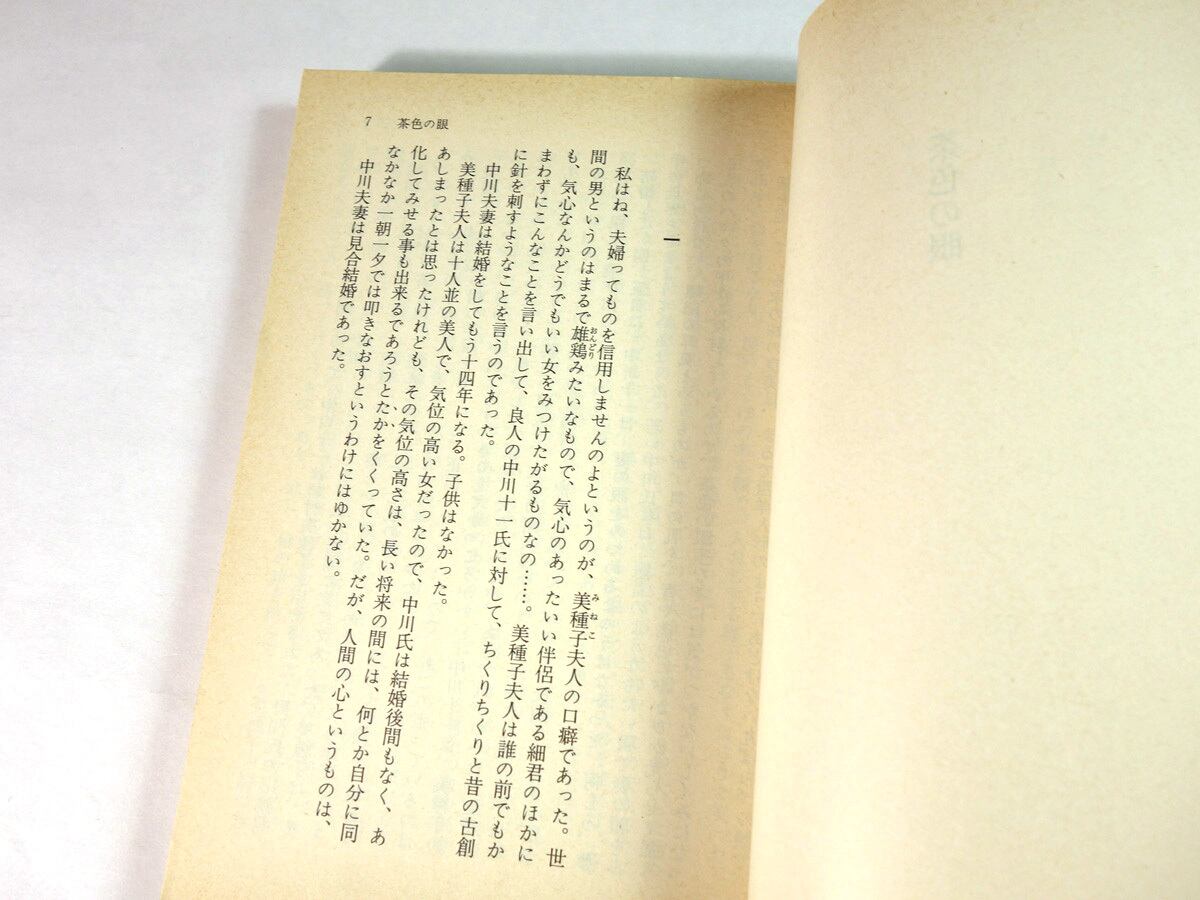 7 茶色の眼
一
私はね、夫婦ってものを信用しませんのよというのが、美種子夫人の口癖であった。世
間の男というのはまるで雄鶏みたいなもので、気心のあったいい伴侶である細君のほかに
も、気心なんかどうでもいい女をみつけたがるものなの……。美種子夫人は誰の前でもか
まわずにこんなことを言い出して、良人の中川十一氏に対して、ちくりちくりと昔の古創
に針を刺すようなことを言うのであった。
中川夫妻は結婚をしてもう十四年になる。子供はなかった。
美種子夫人は十人並の美人で、気位の高い女だったので、中川氏は結婚後間もなく、あ
あしまったとは思ったけれども、その気位の高さは、長い将来の間には、何とか自分に同
化してみせる事も出来るであろうとたかをくくっていた。だが、人間の心というものは、
なかなか一朝一夕では叩きなおすというわけにはゆかない。
中川夫妻は見合結婚であった。